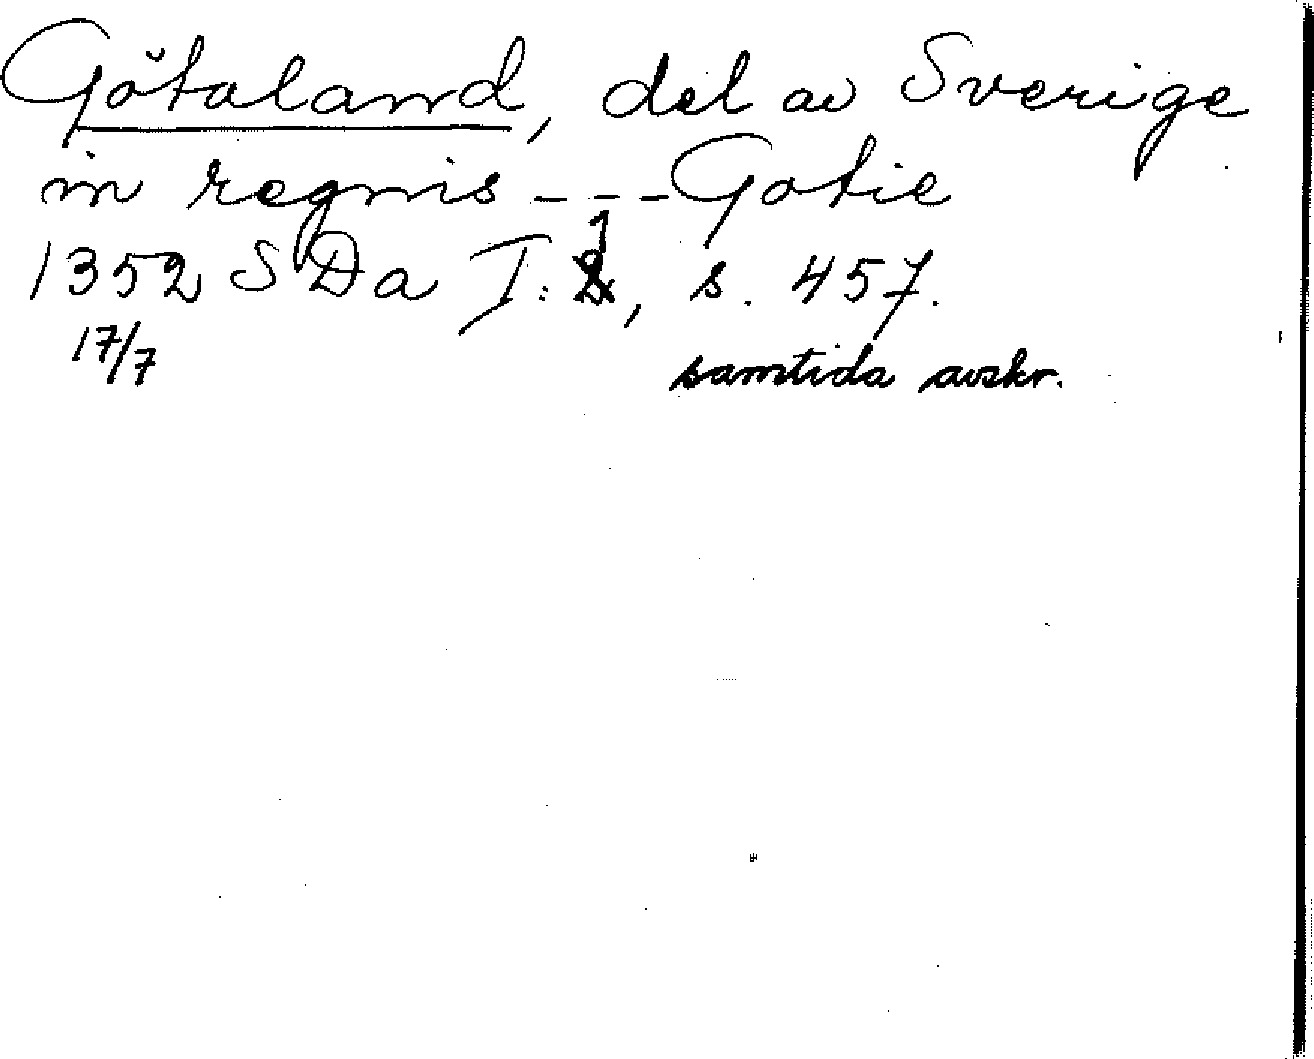 Götaland, del av Sverige
in regnis --- Gotie
1352 SDa I:1, s. 457.
17/7 samtida avskr.